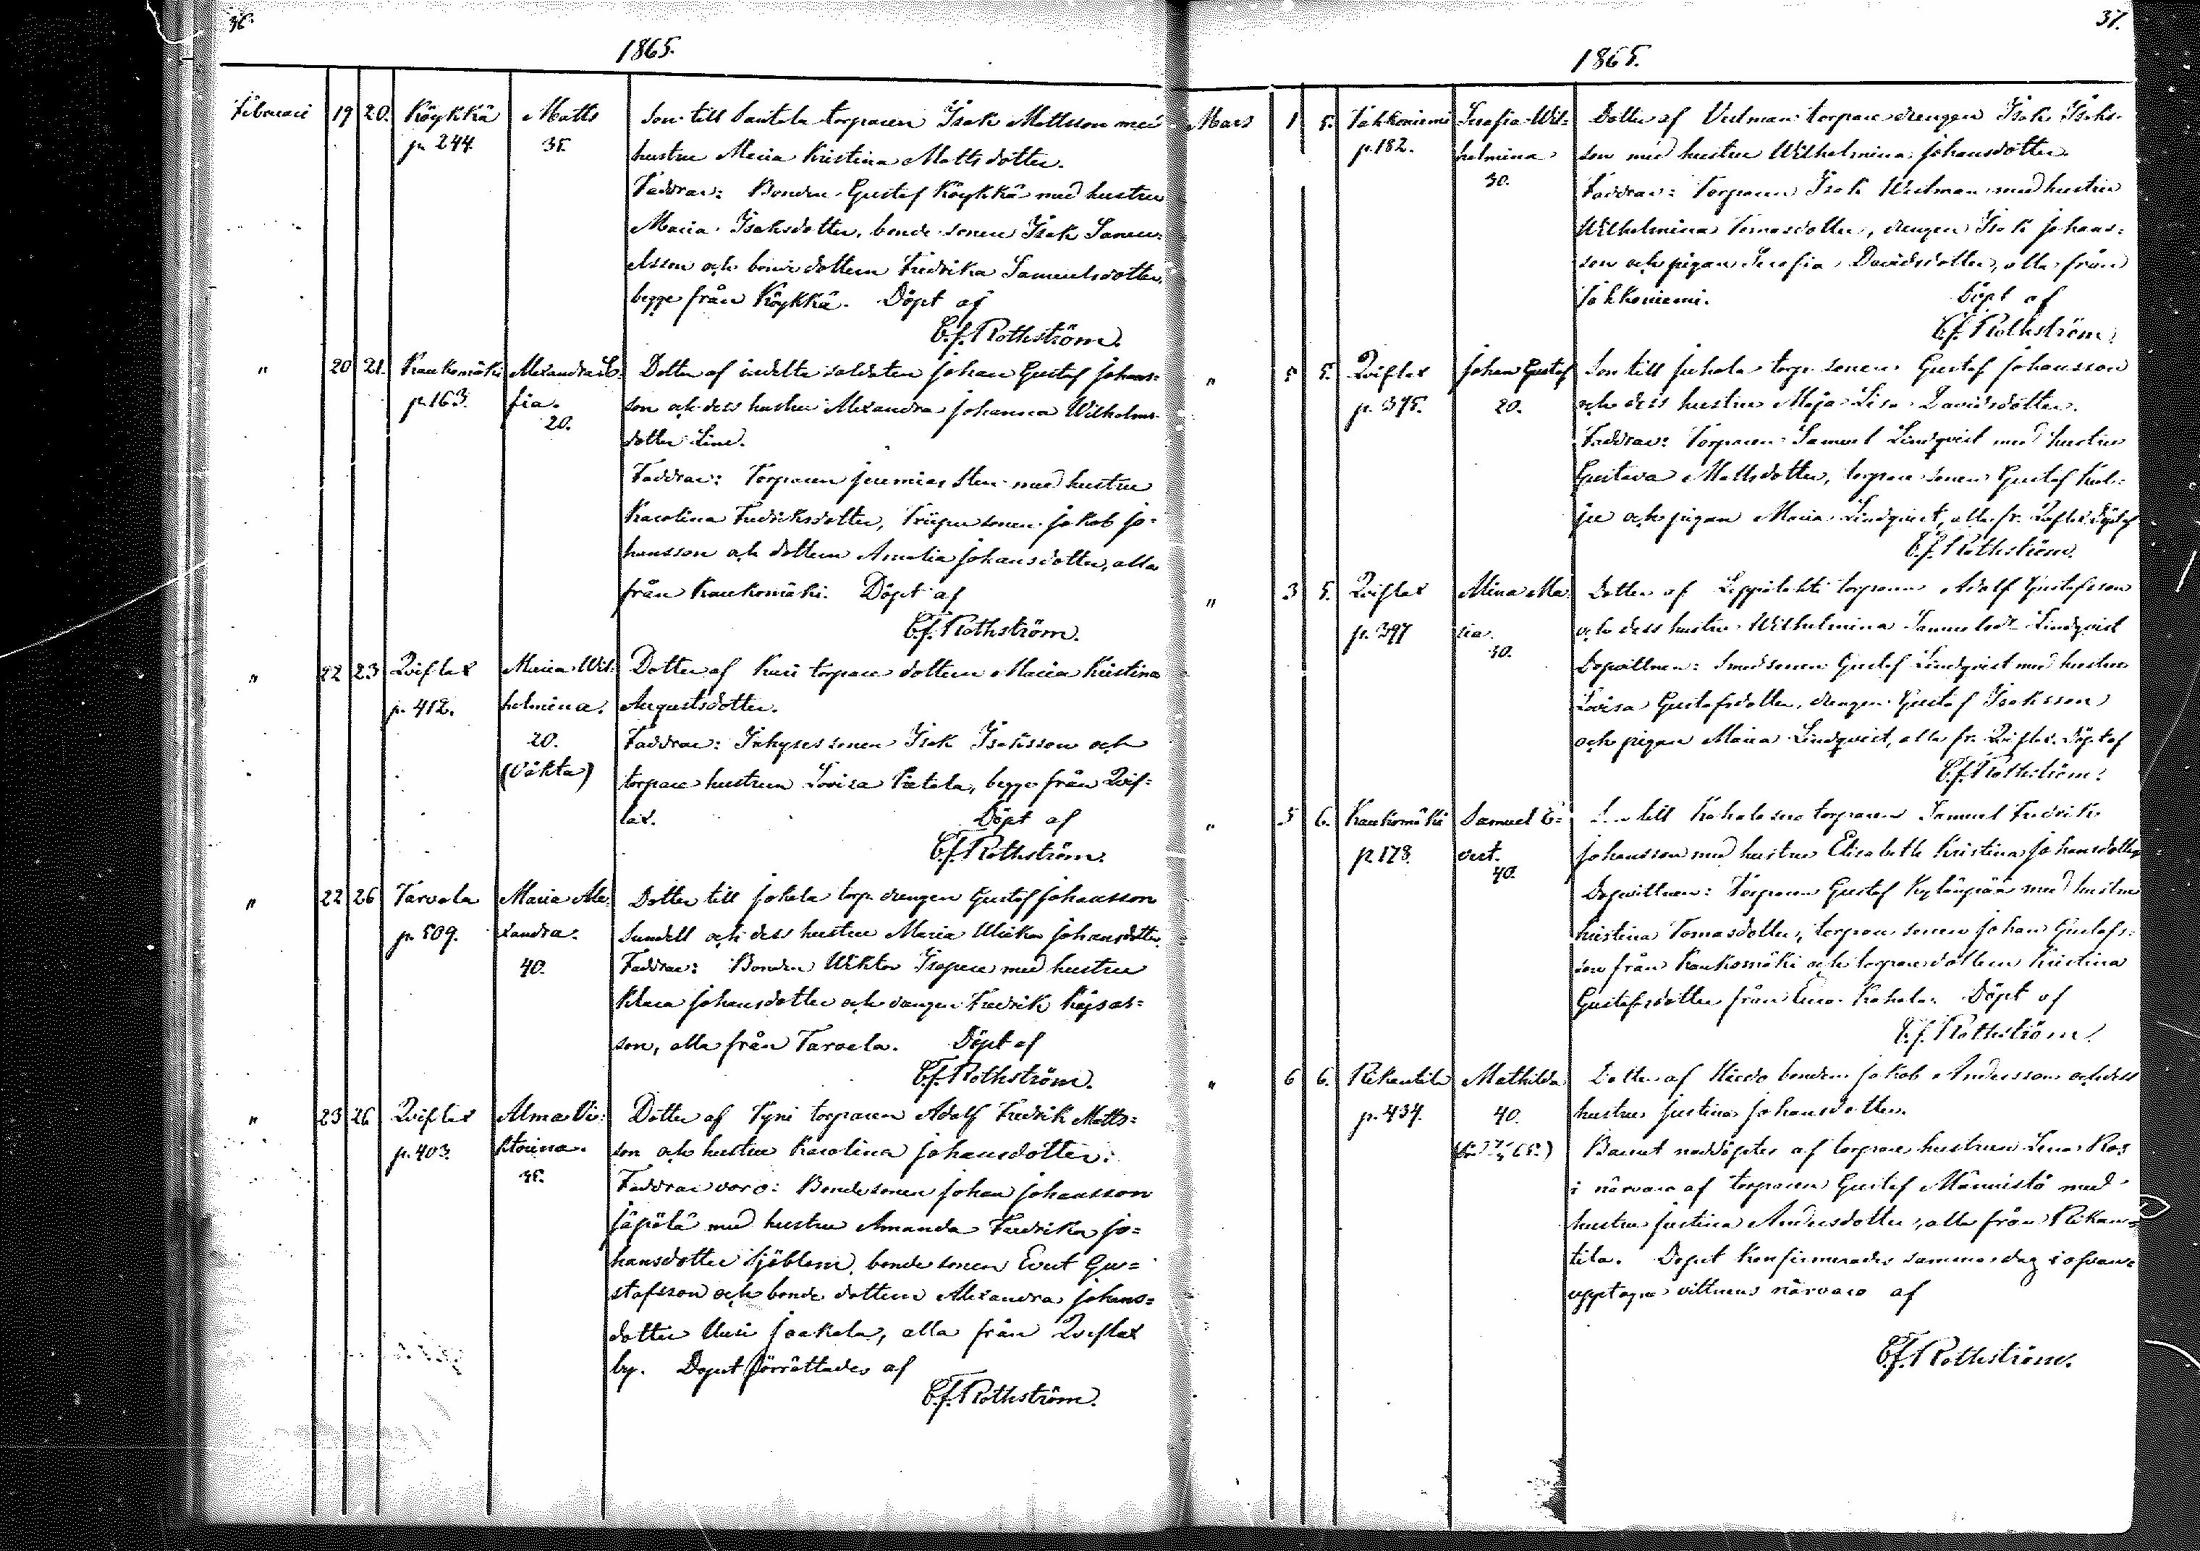 36.
1865.
Februari 19 20. Köykkä Matts Son till Santala torparen Isak Mattsson med
p. 244. 35. hustru Maria Kristina Mattsdotter.
Faddrar: Bonden Gustaf Köykkä med hustru
Maria Isaksdotter, bonde sonen Isak Samu-
elsson och bondedottern Fredrika Samuelsdotter,
begge från Köykkä. Döpt af
C.f. Rothström.
" 20 21. Kaukomäki Alexandra So-
p. 163. fia. 20.
Dotter af indelte soldaten Johan Gustaf Johans-
son och dess hustru Alexandra Johanna Wilhelms-
dotter Lind.
Faddrar: Torparen Jeremias Sten med hustru
Karolina Fredriksdotter, sonen Jakob Jo-
hansson och dottern Amalia Johansdotter, alla
från Kaukomäki. Döpt af
C.f. Rothström.
" 22 23 Qviflax Maria Wil- Dotter af torpare dottern Maria Kristina
p. 412. helmina. Augustsdotter.
20. Faddrar: Inhyses sonen Isak Isaksson och
(Oäkta) torpare hustrun Lovisa Pietola, begge från Qvif-
lax. Döpt af
C.f. Rothström.
" 22 26 Tarvola Maria Ale- Dotter till Jokela torp. drengen Gustaf Johansson
p. 509. xandra. Sundell och dess hustru Maria Ulrika Johansdotter.
40. Faddrar: Bonden Wiktor Isopere med hustru
Klara Johansdotter och drengen Fredrik Kajsas-
son, alla från Tarvola. Döpt af
C.f. Rothström.
" 23 26 Qviflax Alma Vi- Dotter af Tyni torparen Adolf Fredrik Matts-
p. 403. ktorina. son och hustru Karolina Johansdotter.
35. Faddrar voro: Bondesonen Johan Johansson
Jäpölä med hustru Amanda Fredrika Jo-
hansdotter Sjöblom, bonde sonen Evert Gu-
stafsson och bonde dottern Alexandra Johans-
dotter Uusi Jaakola, alla från Qviflax
by. Dopet förrättades af
C.f. Rothström.
37.
1865.
Mars 1 5. Jakkoniemi Serafia Wil- Dotter af Vuolman torpare drengen Isak Isaks-
p. 182. helmina. son med hustru Wilhelmina Johansdotter.
30. Faddrar: Torparen Isak med hustru
Wilhelmina Tomasdotter, drengen Isak Johans-
son och pigan Serafia Davidsdotter, alla från
Jakkoniemi. Döpt af
C.f. Rothström.
" 5 5. Qviflax Johan Gustaf Son till Juhola torp. sonen Gustaf Johansson
p. 375. 20. och dess hustru Maja Lisa Davidsdotter.
Faddrar: Torparen Samuel Lindqvist med hustru
Gustava Mattsdotter, torpare sonen Gustaf
och pigan Maria Lindqvist, alla fr. Qviflax. Döpt af
C.f. Rothström.
" 3 5. Qviflax Alina Ma- Dotter af Leppälahti torparen Adolf Gustafsson
p. 397 ria. och dess hustru Wilhelmina Samuelsdr Lindqvist
40. Dopvittnen: Smedsonen Gustaf Lindqvist med hustru
Lovisa Gustafsdotter, drengen Gustaf Isaksson
och pigan Maria Lindqvist, alla fr. Qviflax. Döpt af
C.f. Rothström.
" 5 6. Kaukomäki Samuel E- Son till torparen Samuel Fredrik
p. 178. vert. Johansson med hustru Elisabeth Kristina Johansdotter
40.
Dopvittnen: Torparen Gustaf Kylänpää med hustru
Kristina Tomasdotter, torpare sonen Johan Gustafs-
son från Kaukomäki och torpare dottern Kristina
Gustafsdotter från Kahala. Döpt af
C.f. Rothström.
" 6 6. Rikantila Mathilda Dotter af Hiedo bonden Jakob Andersson och dess
p. 434. 40. hustru Justina Johansdotter.
Barnet noddöptes af torpare hustrun Lena Ros
i närvaro af torparen Gustaf Männistö med
hustru Justina Andersdotter, alla från Rikan-
tila. Dopet konfirmerades samma dag i ofvan-
upptagne vittnens närvaro af
C.f. Rothström.